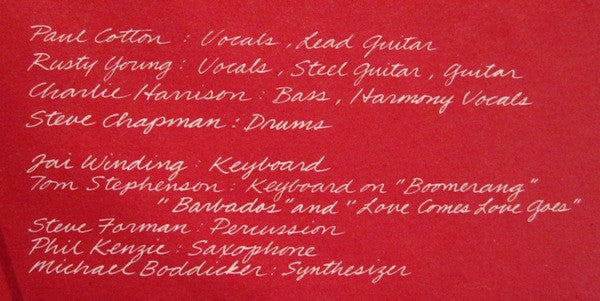 Paul Cotton : Vocals, Lead Guitar
Rusty Young : Vocals, Steel Guitar, Guitar
Charlie Harrison : Bass, Harmony Vocals
Steve Chapman : Drums
Jai Winding : Keyboard
Tom Stephenson : Keyboard on "Boomerang"
"Barbados" and "Love Comes Love Goes"
Steve Forman : Percussion
Phil Kenzie : Saxophone
Michael Boddicker : Synthesizer